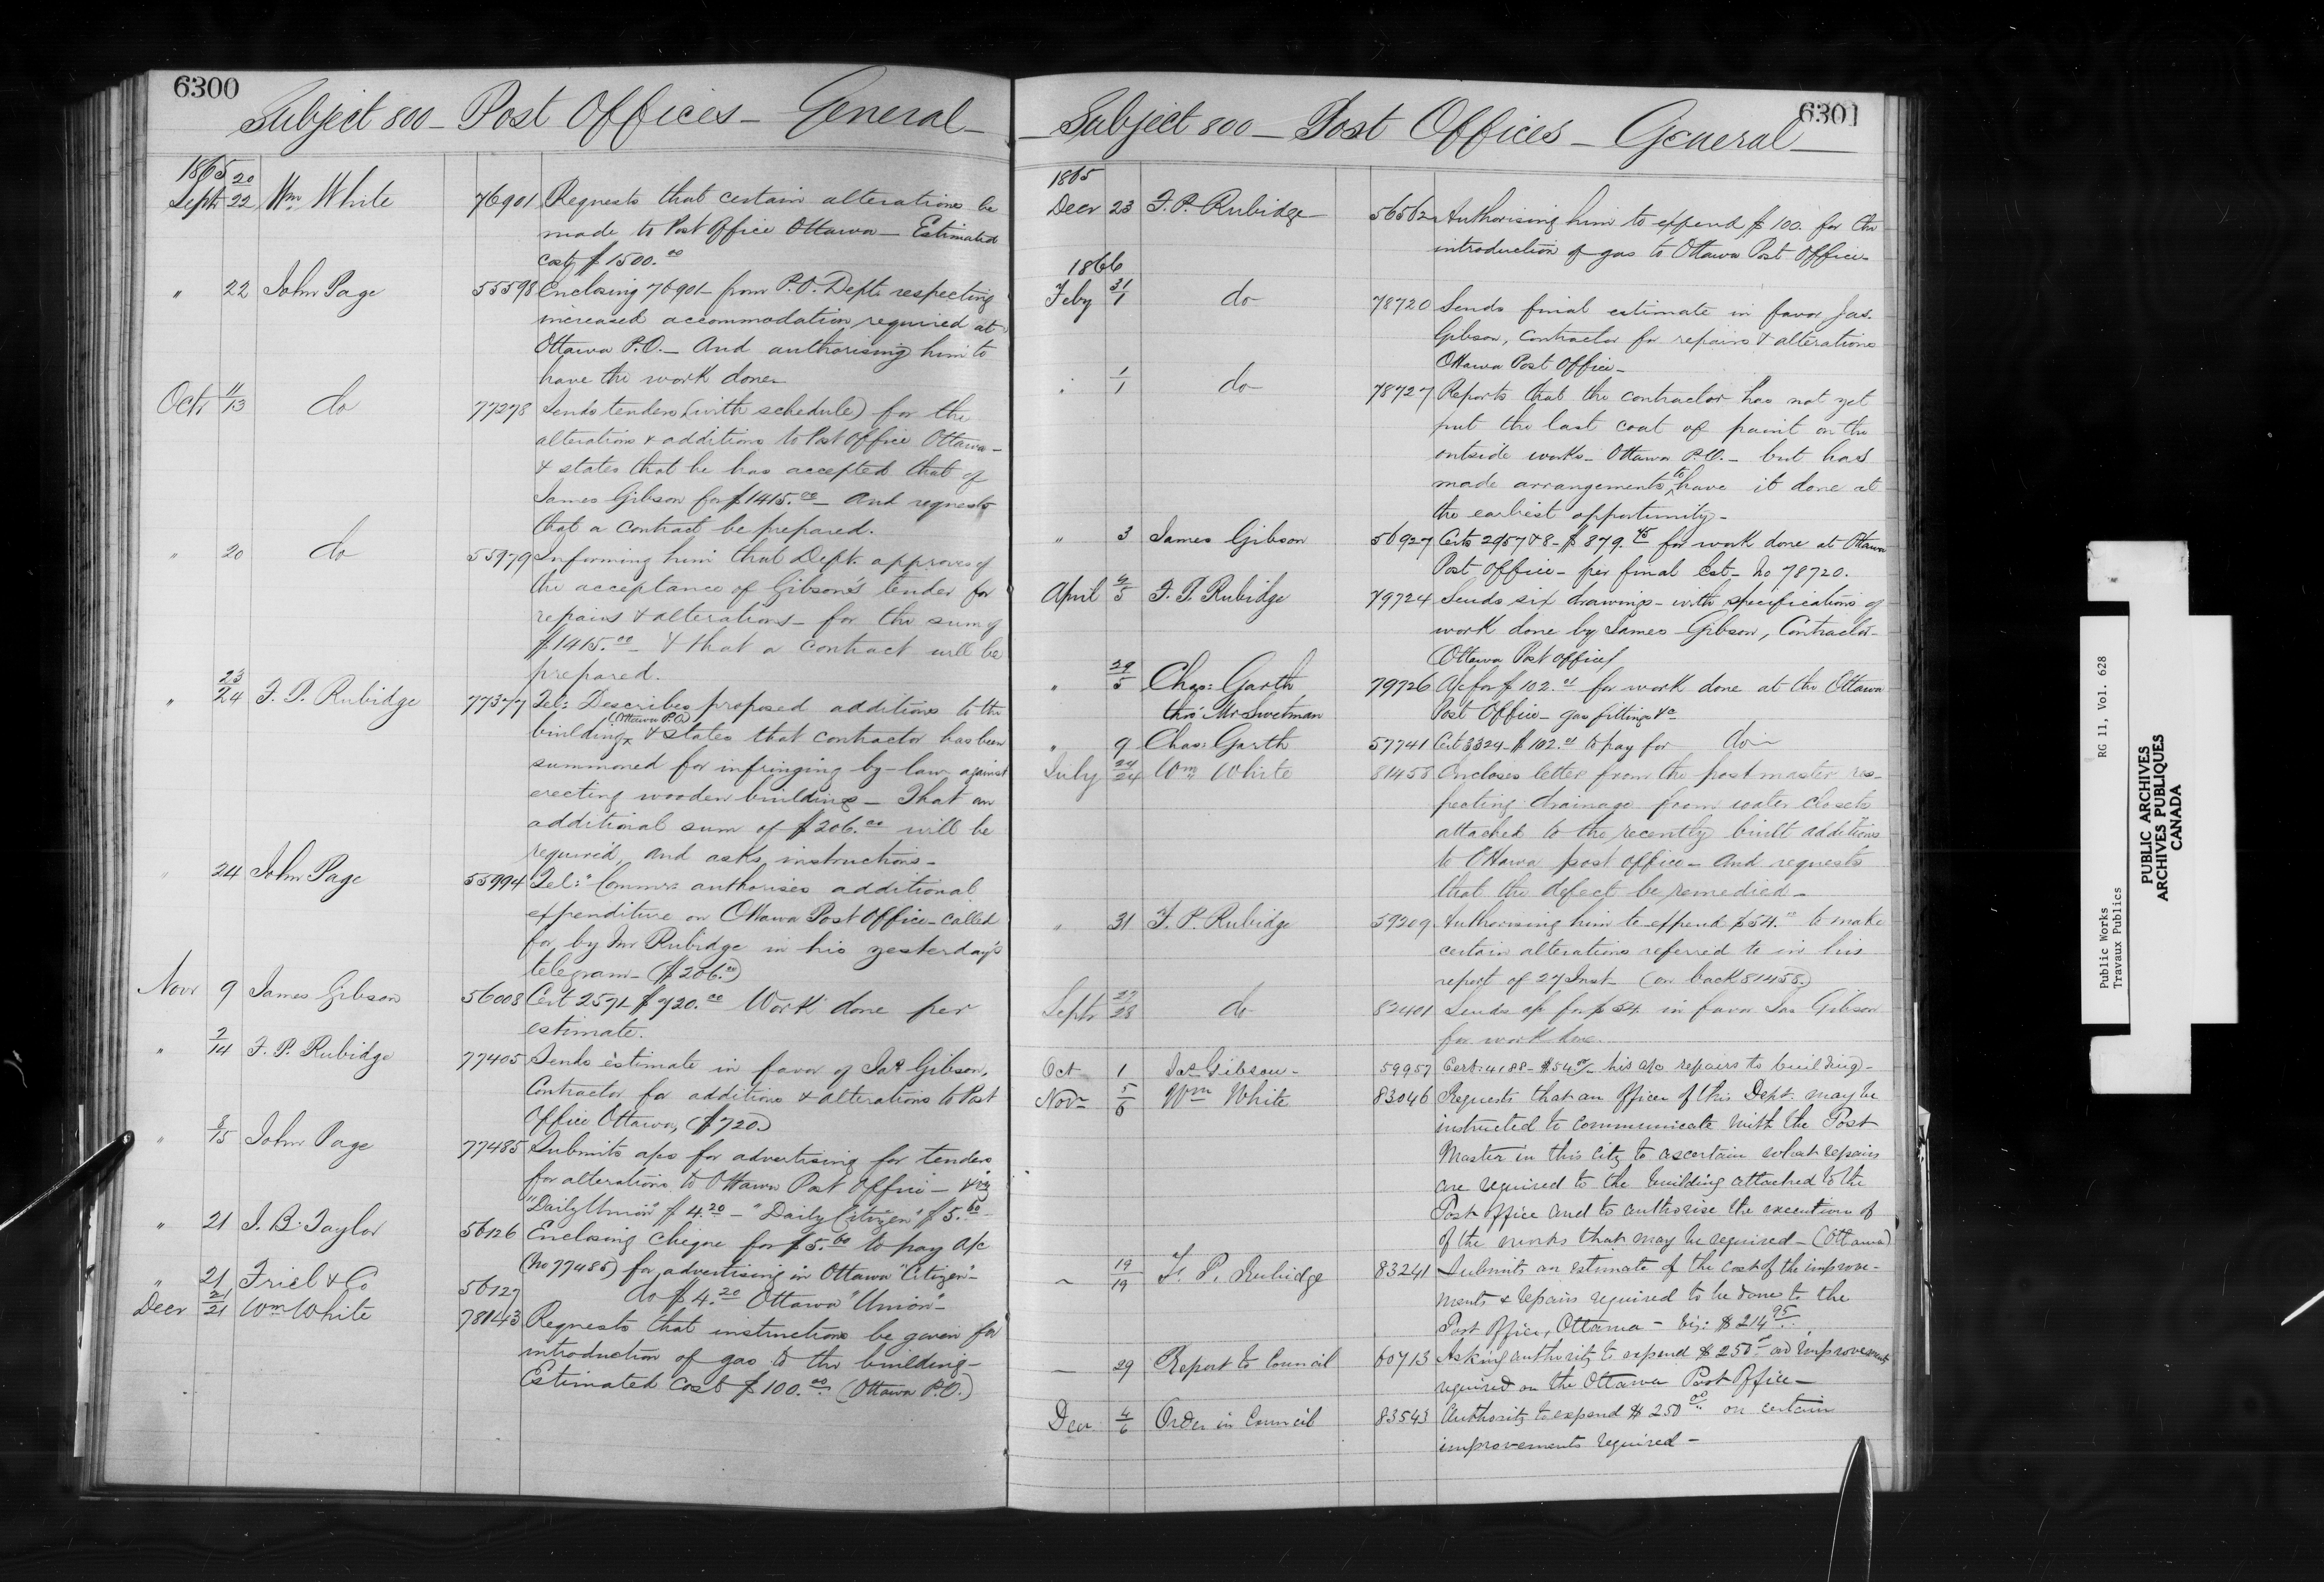 6300
Subject 800 - Post Offices - General -
1865
Sept 20/22 Wm White 76901 Requests that certain alterations be
made to Post Office Ottawa - Estimated
cost $1500.00
" 22 John Page 55598 Enclosing 76901 - from P.O. Dept. respecting
increased accommodation required at
Ottawa P.O. - And authorising him to
have the work done -
Octr 11/13 do 77278 Sends tenders (with schedule) for the
alterations & additions to Post Office Ottawa -
& states that he has accepted that of
James Gibson for $1415.00 - And requests
that a contract be prepared.
" 20 do 55979 Informing him that Dept. approves of
the acceptance of Gibson's tender for
repairs & alterations - for the sum of
$1415.00 - & that a contract will be
prepared.
" 23/24 F. P. Rubidge 77377 Tel: Describes proposed additions to the
building (Ottawa P.O) & states that contractor has been
summoned for infringing by-law against
erecting wooden buildings - That an
additional sum of $206.00 will be
required, and asks instructions -
" 24 John Page 55994 Tel: "Commrs authorises additional
expenditure on Ottawa Post Office - called
for by Mr Rubidge in his yesterday's
telegram - ($206.00)
Novr 9 James Gibson 56008 Cert 2571 - $720.00 Work done per
estimate.
" 2/14 F. P. Rubidge 77405 Sends estimate in favor of Jas Gibson,
Contractor for additions & alterations to Post
Office Ottawa, ($720.)
" 8/15 John Page 77485 Submits a/cs for advertising for tenders
for alterations to Ottawa Post Office - viz
"Daily Union" $4.20 - "Daily Citizen" $5.60 -
" 21 I. B. Taylor 56126 Enclosing cheque for $5.60 to pay a/c
(No 77485) for advertising in Ottawa "Citizen" -
" 21 Friel & Co 56127 do $4.20 Ottawa "Union" -
Decr 21/21 Wm White 78143 Requests that instructions be given for
introduction of gas to the building -
Estimated cost $100.00 (Ottawa P.O.)
6301
- Subject 800 - Post Offices - General -
1865
Decr 23 F. P. Rubidge 56562 Authorising him to expend $100. for the
introduction of gas to Ottawa Post Office -
1866
Feby 31/1 do 78720 Sends final estimate in favor Jas.
Gibson, Contractor for repairs & alterations
Ottawa Post Office -
" 1/1 do 78727 Reports that the contractor has not yet
put the last coat of paint on the
outside works - Ottawa P.O. - but has
made arrangements to have it done at
the earliest opportunity -
" 3 James Gibson 56927 Certs 2957 & 8 - $879.45 for work done at Ottawa
Post Office - per final Est - No 78720.
April 4/5 F. P. Rubidge 79724 Sends six drawings - with specifications of
work done by James Gibson, Contractor -
(Ottawa Post office)
" 29/5 Chas: Garth 79726 A/c for $102.01 for work done at the Ottawa
thro' Mr Sweetman Post Office - gas fittings &c
" 9 Chas: Garth 57741 Cert 3324 - $102.01 to pay for do -
July 24/24 Wm White 81458 Encloses letter from the post master res-
pecting drainage from water closets
attached to the recently built additions
to Ottawa post office - And requests
that the defect be remedied -
" 31 F. P. Rubidge 59209 Authorising him to expend $54.00 to make
certain alterations referred to in his
report of 27 Inst - (on back 81458.)
Septr 27/28 do 82401 Sends a/c for $54. in favor Jas Gibson
for work done.
Oct 1 Jas Gibson - 59957 Cert: 4188 - $54.00 his a/c repairs to building -
Novr 5/6 Wm White 83046 Requests that an officer of this Dept. may be
instructed to communicate with the Post
Master in this city to ascertain what repairs
are required to the building attached to the
Post Office and to authorise the execution of
of the works that may be required - (Ottawa)
" 19/19 F. P. Rubidge 83241 Submits an estimate of the cost of the improve-
ments & repairs required to be done to the
Post Office, Ottawa - viz: $214.95
- 29 Report to Council 60713 Asking authority to expend $250.00 on improvements
required on the Ottawa Post Office -
Decr 4/6 Order in Council 83543 Authority to expend $250.00 on certain
improvements required -
Public Works RG 11, Vol. 628
Travaux Publics
PUBLIC ARCHIVES
ARCHIVES PUBLIQUES
CANADA